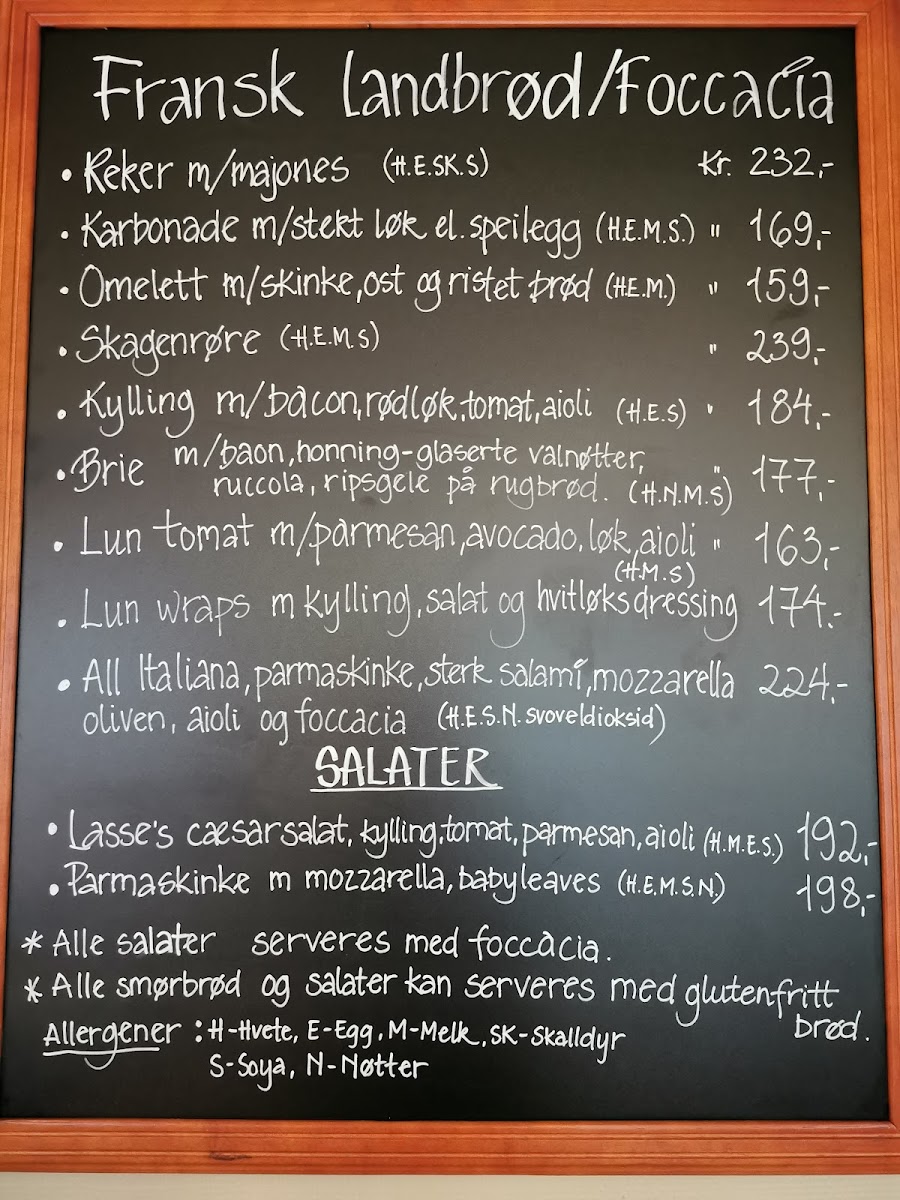 Fransk Landbrød/Foccacia
• Reker m/majones (H.E.SK.S) Kr. 232,-
• Karbonade m/stekt løk el. speilegg (H.E.M.S.) " 169,-
• Omelett m/skinke, ost og ristet brød (H.E.M.) " 159,-
• Skagenrøre (H.E.M.S) " 239,-
• Kylling m/bacon, rødløk, tomat, aioli (H.E.S) " 184,-
• Brie m/baon, honning-glaserte valnøtter, " 177,-
ruccola, ripsgele på rugbrød. (H.N.M.S)
• Lun tomat m/parmesan, avocado, løk, aioli " 163,-
(H.M.S)
• Lun wraps m kylling, salat og hvitløksdressing 174.-
• All Italiana, parmaskinke, sterk salami, mozzarella 224,-
oliven, aioli og foccacia (H.E.S.N. svoveldioksid)
SALATER
• Lasse's cæsarsalat, kylling, tomat, parmesan, aioli (H.M.E.S.) 192,-
• Parmaskinke m mozzarella, babyleaves (H.E.M.S.N.) 198,-
* Alle salater serveres med foccacia.
* Alle smørbrød og salater kan serveres med glutenfritt
brød.
Allergener : H-Hvete, E-Egg, M-Melk, SK-Skalldyr
S-Soya, N-Nøtter